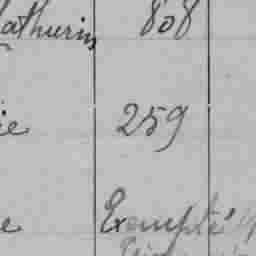 athurin 808
ie 259
e Exempté